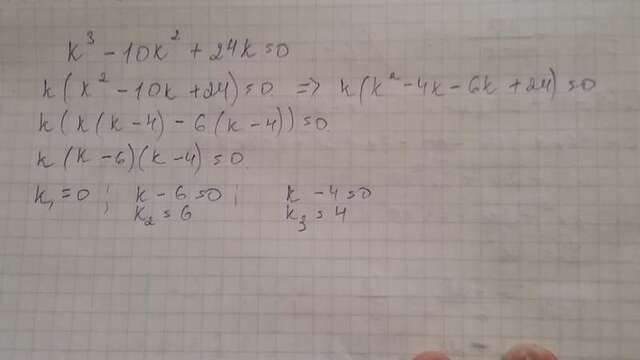 k³ - 10k² + 24k = 0
k(k² - 10k + 24) = 0 => k(k² - 4k - 6k + 24) = 0
k(k(k-4) - 6(k-4)) = 0
k(k-6)(k-4) = 0
k₁ = 0 ; k - 6 = 0 ; k - 4 = 0
k₂ = 6 k₃ = 4